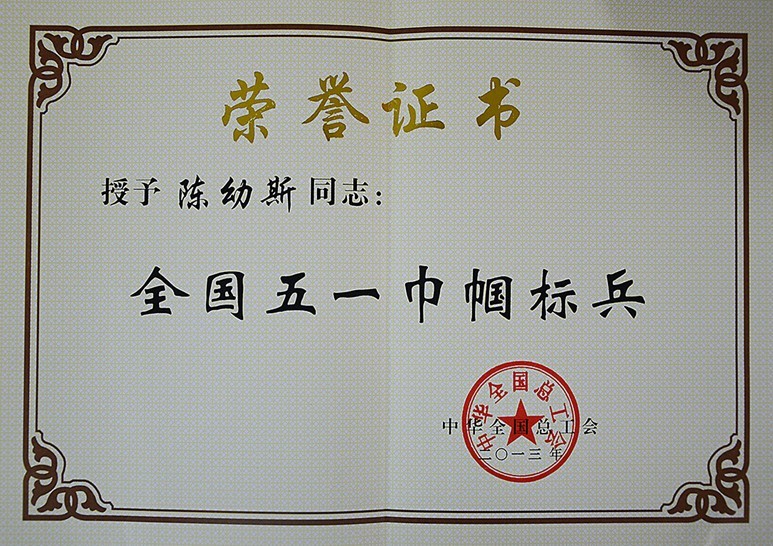 荣誉证书
授予 陈幼斯 同志：
全国五一巾帼标兵
中华全国总工会
中华全国总工会
二〇一三年